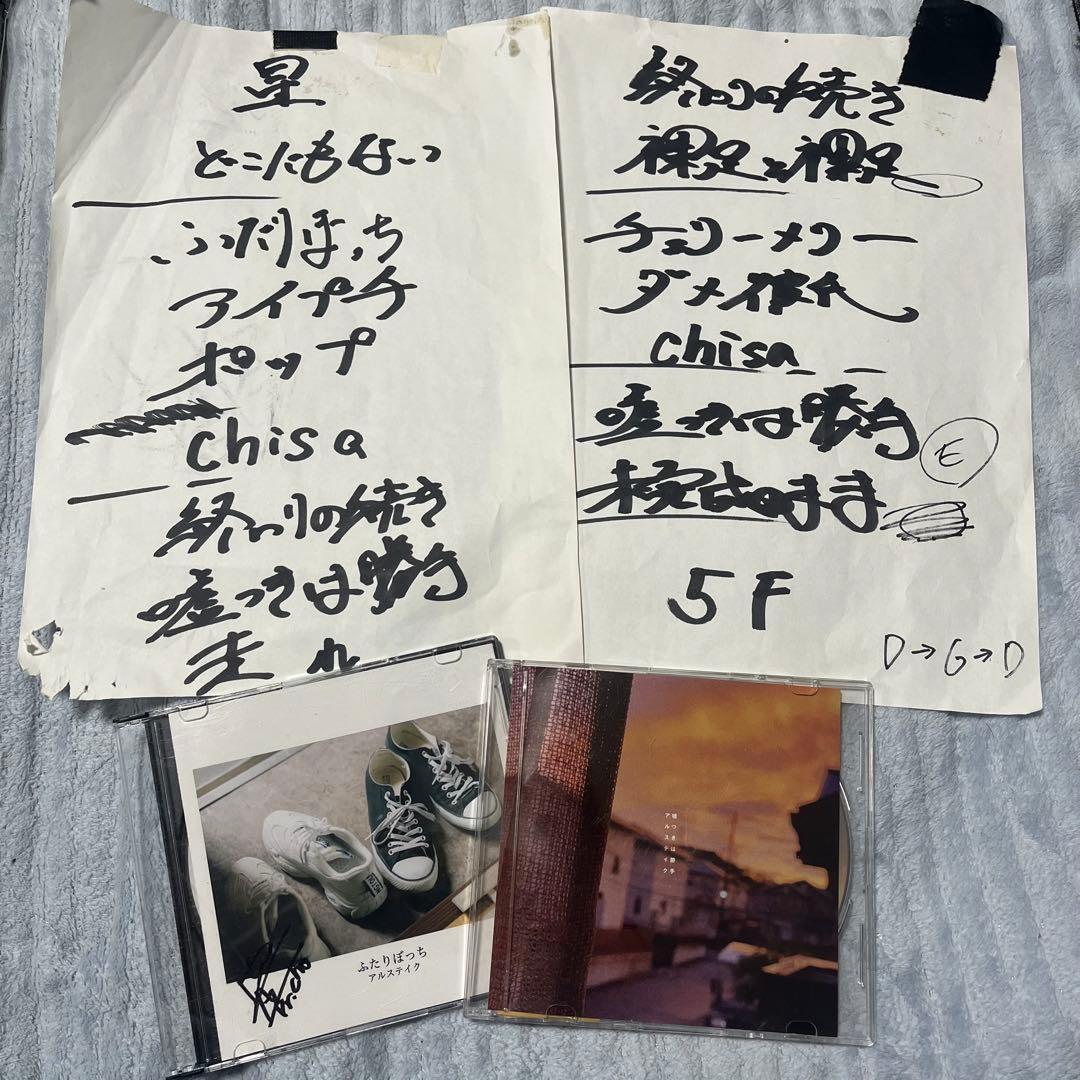 星
どこにもない
ふたりぼっち
アイプチ
ポップ
chisa
終わりの続き
嘘つきは勝手
走れ
終わりの続き
裸足と裸足
チェリーメリー
ダメ彼氏
chisa
嘘つきは勝手
E
未完成のまま
5F
D→G→D
ふたりぼっち
アルステイク
嘘つきは勝手
アルステイク